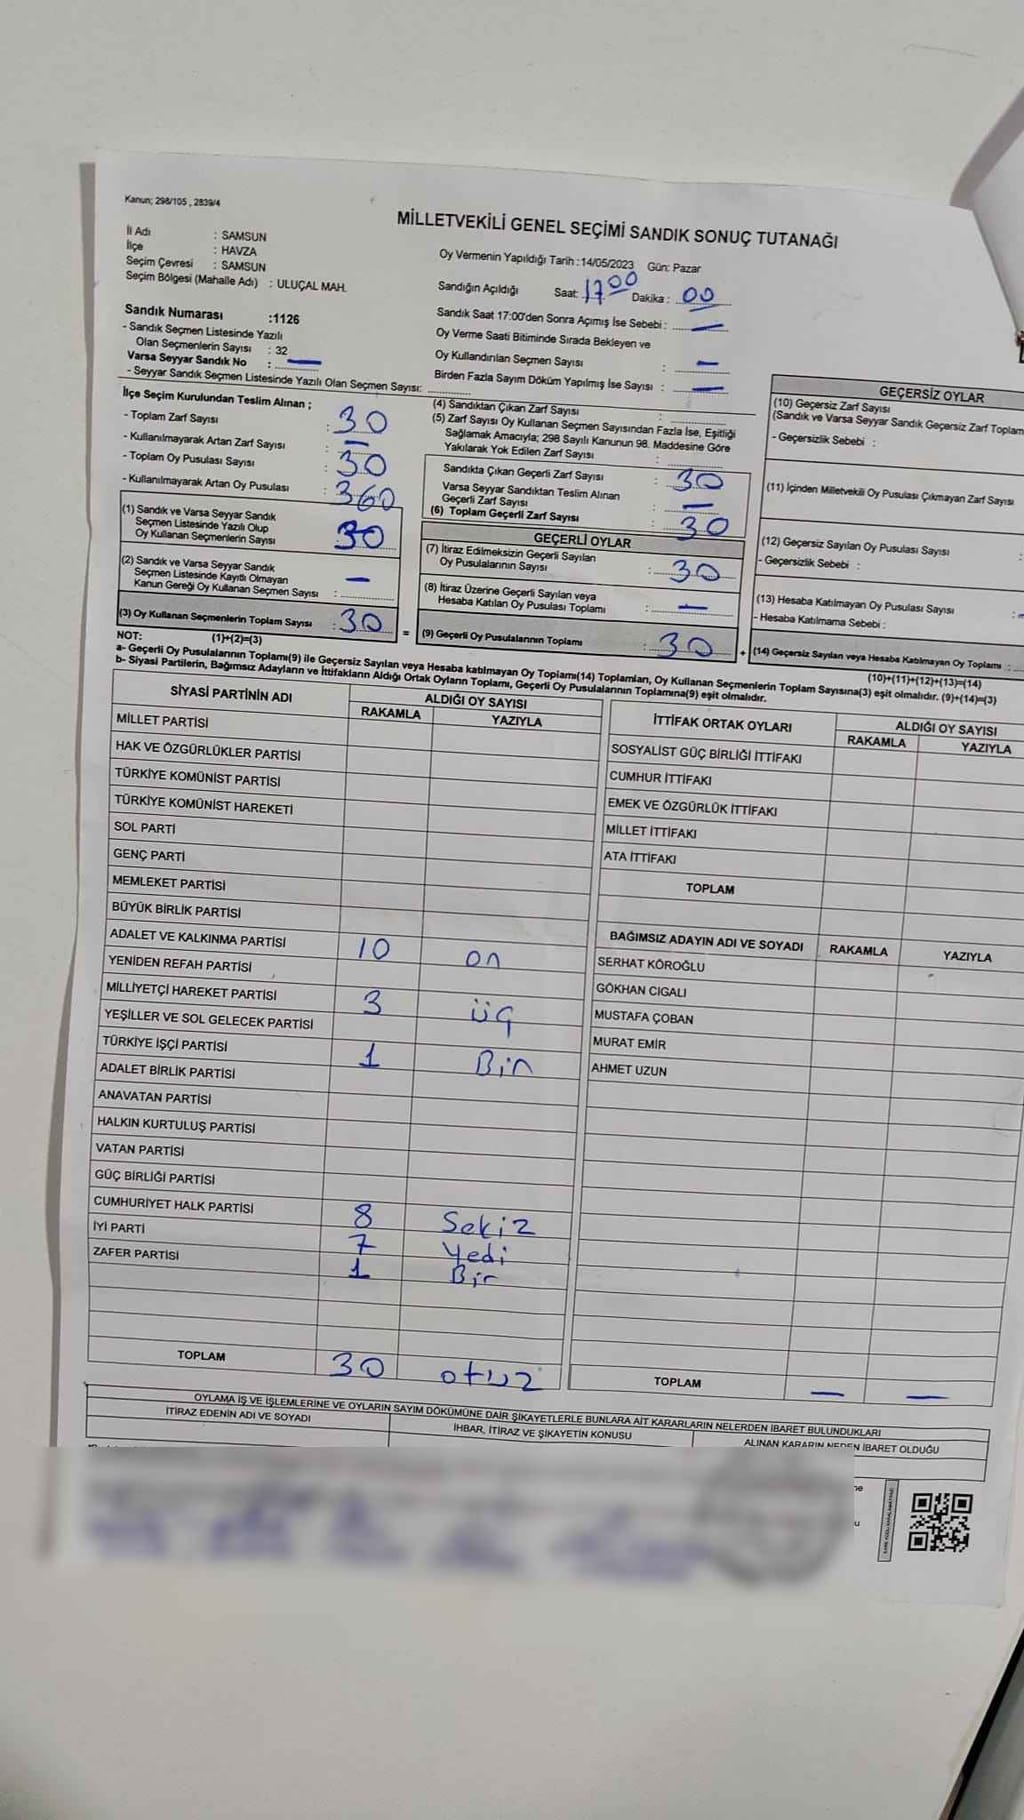 Kanun; 298/105 , 2839/4
MİLLETVEKİLİ GENEL SEÇİMİ SANDIK SONUÇ TUTANAĞI
İl Adı : SAMSUN
İlçe : HAVZA
Seçim Çevresi : SAMSUN
Seçim Bölgesi (Mahalle Adı) : ULUÇAL MAH.
Oy Vermenin Yapıldığı Tarih :14/05/2023 Gün: Pazar
Sandığın Açıldığı Saat: 17 00 Dakika : 00
Sandık Saat 17:00'den Sonra Açımış İse Sebebi : —
Oy Verme Saati Bitiminde Sırada Bekleyen ve
Oy Kullandırılan Seçmen Sayısı : —
Birden Fazla Sayım Döküm Yapılmış İse Sayısı : —
Sandık Numarası :1126
- Sandık Seçmen Listesinde Yazılı
Olan Seçmenlerin Sayısı : 32
Varsa Seyyar Sandık No : —
- Seyyar Sandık Seçmen Listesinde Yazılı Olan Seçmen Sayısı:
İlçe Seçim Kurulundan Teslim Alınan ;
- Toplam Zarf Sayısı : 30
- Kullanılmayarak Artan Zarf Sayısı : —
- Toplam Oy Pusulası Sayısı : 30
- Kullanılmayarak Artan Oy Pusulası : 360
(1) Sandık ve Varsa Seyyar Sandık
Seçmen Listesinde Yazılı Olup
Oy Kullanan Seçmenlerin Sayısı 30
(2) Sandık ve Varsa Seyyar Sandık
Seçmen Listesinde Kayıtlı Olmayan
Kanun Gereği Oy Kullanan Seçmen Sayısı : —
(3) Oy Kullanan Seçmenlerin Toplam Sayısı : 30
(1)+(2)=(3)
(4) Sandıktan Çıkan Zarf Sayısı :
(5) Zarf Sayısı Oy Kullanan Seçmen Sayısından Fazla İse, Eşitliği
Sağlamak Amacıyla; 298 Sayılı Kanunun 98. Maddesine Göre
Yakılarak Yok Edilen Zarf Sayısı :
Sandıkta Çıkan Geçerli Zarf Sayısı : 30
Varsa Seyyar Sandıktan Teslim Alınan
Geçerli Zarf Sayısı : —
(6) Toplam Geçerli Zarf Sayısı : 30
GEÇERLİ OYLAR
(7) İtiraz Edilmeksizin Geçerli Sayılan
Oy Pusulalarının Sayısı : 30
(8) İtiraz Üzerine Geçerli Sayılan veya
Hesaba Katılan Oy Pusulası Toplamı : —
= (9) Geçerli Oy Pusulalarının Toplamı : 30
GEÇERSİZ OYLAR
(10) Geçersiz Zarf Sayısı
(Sandık ve Varsa Seyyar Sandık Geçersiz Zarf Toplam
- Geçersizlik Sebebi :
(11) İçinden Milletvekili Oy Pusulası Çıkmayan Zarf Sayısı
(12) Geçersiz Sayılan Oy Pusulası Sayısı :
- Geçersizlik Sebebi :
(13) Hesaba Katılmayan Oy Pusulası Sayısı :
- Hesaba Katılmama Sebebi :
+ (14) Geçersiz Sayılan veya Hesaba Katılmayan Oy Toplamı :
(10)+(11)+(12)+(13)=(14)
NOT:
a- Geçerli Oy Pusulalarının Toplamı(9) ile Geçersiz Sayılan veya Hesaba katılmayan Oy Toplamı(14) Toplamları, Oy Kullanan Seçmenlerin Toplam Sayısına(3) eşit olmalıdır. (9)+(14)=(3)
b- Siyasi Partilerin, Bağımsız Adayların ve İttifakların Aldığı Ortak Oyların Toplamı, Geçerli Oy Pusulalarının Toplamına(9) eşit olmalıdır.
SİYASİ PARTİNİN ADI ALDIĞI OY SAYISI
RAKAMLA YAZIYLA
MİLLET PARTİSİ
HAK VE ÖZGÜRLÜKLER PARTİSİ
TÜRKİYE KOMÜNİST PARTİSİ
TÜRKİYE KOMÜNİST HAREKETİ
SOL PARTİ
GENÇ PARTİ
MEMLEKET PARTİSİ
BÜYÜK BİRLİK PARTİSİ
ADALET VE KALKINMA PARTİSİ 10 on
YENİDEN REFAH PARTİSİ
MİLLİYETÇİ HAREKET PARTİSİ 3 üç
YEŞİLLER VE SOL GELECEK PARTİSİ
TÜRKİYE İŞÇİ PARTİSİ 1 Bir
ADALET BİRLİK PARTİSİ
ANAVATAN PARTİSİ
HALKIN KURTULUŞ PARTİSİ
VATAN PARTİSİ
GÜÇ BİRLİĞİ PARTİSİ
CUMHURİYET HALK PARTİSİ 8 Sekiz
İYİ PARTİ 7 Yedi
ZAFER PARTİSİ 1 Bir
TOPLAM 30 otuz
İTTİFAK ORTAK OYLARI ALDIĞI OY SAYISI
RAKAMLA YAZIYLA
SOSYALİST GÜÇ BİRLİĞİ İTTİFAKI
CUMHUR İTTİFAKI
EMEK VE ÖZGÜRLÜK İTTİFAKI
MİLLET İTTİFAKI
ATA İTTİFAKI
TOPLAM
BAĞIMSIZ ADAYIN ADI VE SOYADI RAKAMLA YAZIYLA
SERHAT KÖROĞLU
GÖKHAN CIGALI
MUSTAFA ÇOBAN
MURAT EMİR
AHMET UZUN
TOPLAM — —
OYLAMA İŞ VE İŞLEMLERİNE VE OYLARIN SAYIM DÖKÜMÜNE DAİR ŞİKAYETLERLE BUNLARA AİT KARARLARIN NELERDEN İBARET BULUNDUKLARI
İTİRAZ EDENİN ADI VE SOYADI İHBAR, İTİRAZ VE ŞİKAYETİN KONUSU ALINAN KARARIN NEDEN İBARET OLDUĞU